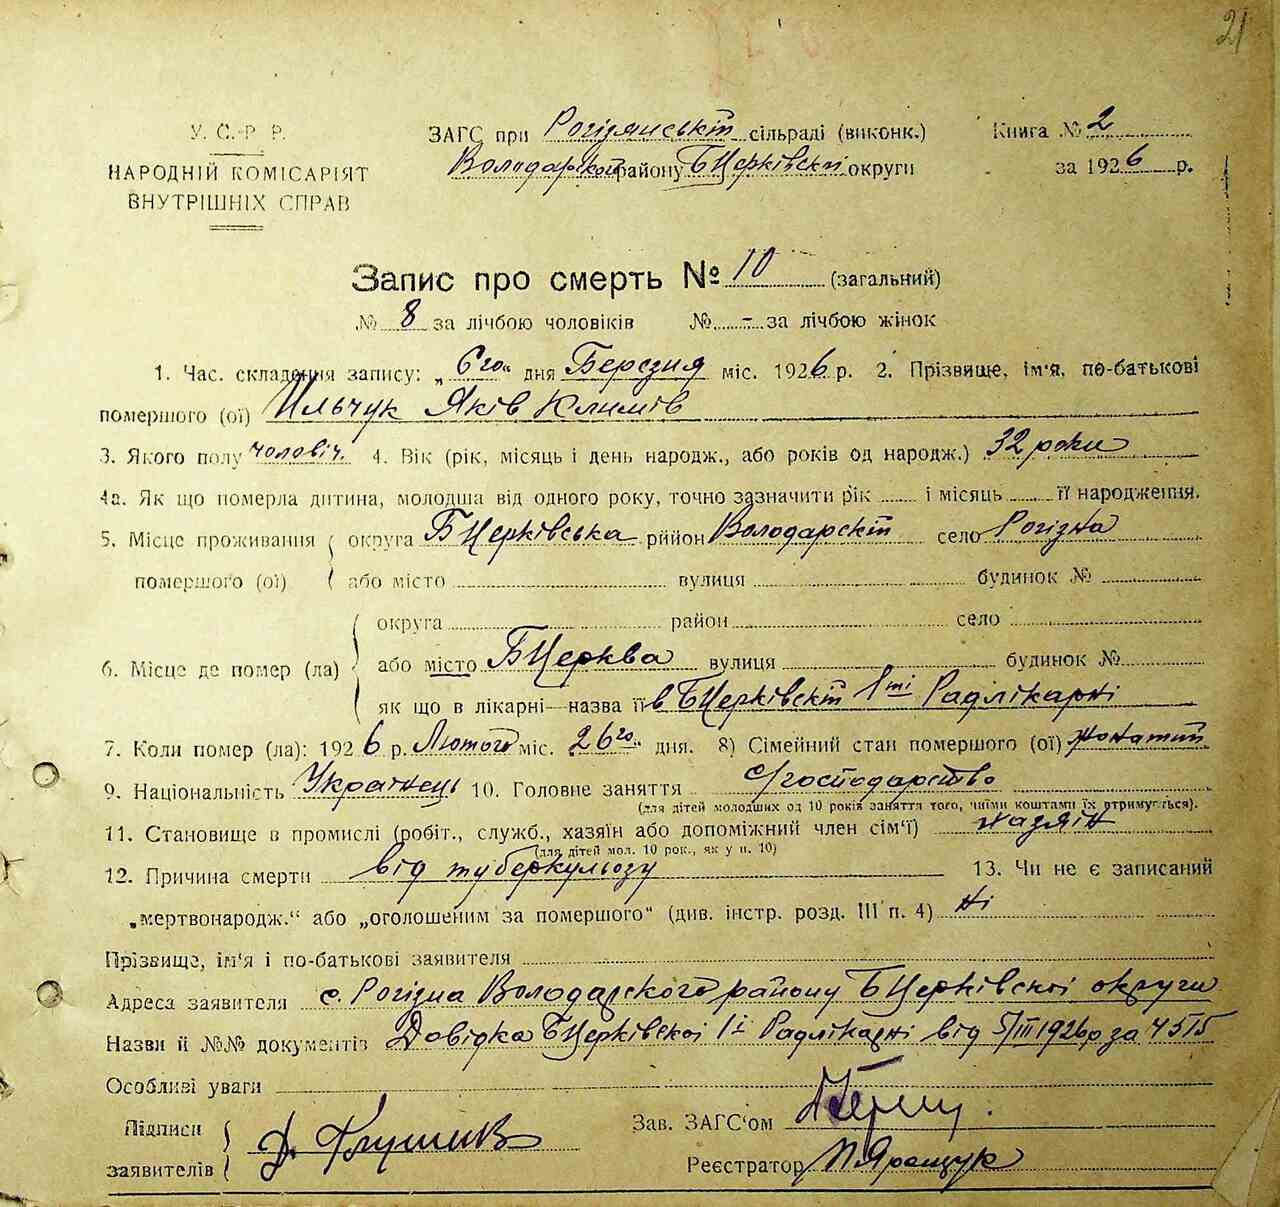 21
У. С. Р Р.
НАРОДНІЙ КОМІСАРІЯТ
ВНУТРІШНІХ СПРАВ
ЗАГС при Рогізянській сільраді (виконк.)
Володарського району БЦерківської округи
Книга № 2
за 1926 р.
Запис про смерть № 10 (загальний)
№ 8 за лічбою чоловіків №. - за лічбою жінок
1. Час. складення запису: „ 6го “ дня Березня міс. 1926 р. 2. Прізвище, ім'я, по-батькові
помершого (ої) Ильчук Яків Климів
3. Якого полу чоловіч. 4. Вік (рік, місяць і день народж., або років од народж.) 32 роки
4а. Як що померла дитина, молодша від одного року, точно зазначити рік ... і місяць ... її народження.
5. Місце проживання округа БЦерківська район Володарський село Рогізна
помершого (ої) або місто вулиця будинок №
округа район село
6. Місце де помер (ла) або місто БЦерква вулиця будинок №
як що в лікарні—назва її в БЦерківській 1ші Радлікарні
7. Коли помер (ла): 1926 р. Лютого міс. 26го дня. 8) Сімейний стан помершого (ої) жонатий
9. Національність Українець 10. Головне заняття с/господарство
(для дітей молодших од 10 років заняття того, чиїми коштами їх отримується).
11. Становище в промислі (робіт., служб., хазяїн або допоміжний член сім'ї) хазяін
(для дітей мол. 10 рок., як у п. 10)
12. Причина смерти від туберкульозу 13. Чи не є записаний
„мертвонародж.“ або „оголошеним за помершого“ (див. інстр. розд. III п. 4) ні
Прізвище, ім'я і по-батькові заявителя
Адреса заявителя с. Рогізна Володарского району БЦерківскої округи
Назви й №№ документів Довідка БЦерківскої 1ї Радлікарні від 5/III 1926р за 4515
Особливі уваги
Підписи
заявителів
Зав. ЗАГС'ом
Реєстратор П Ярещук